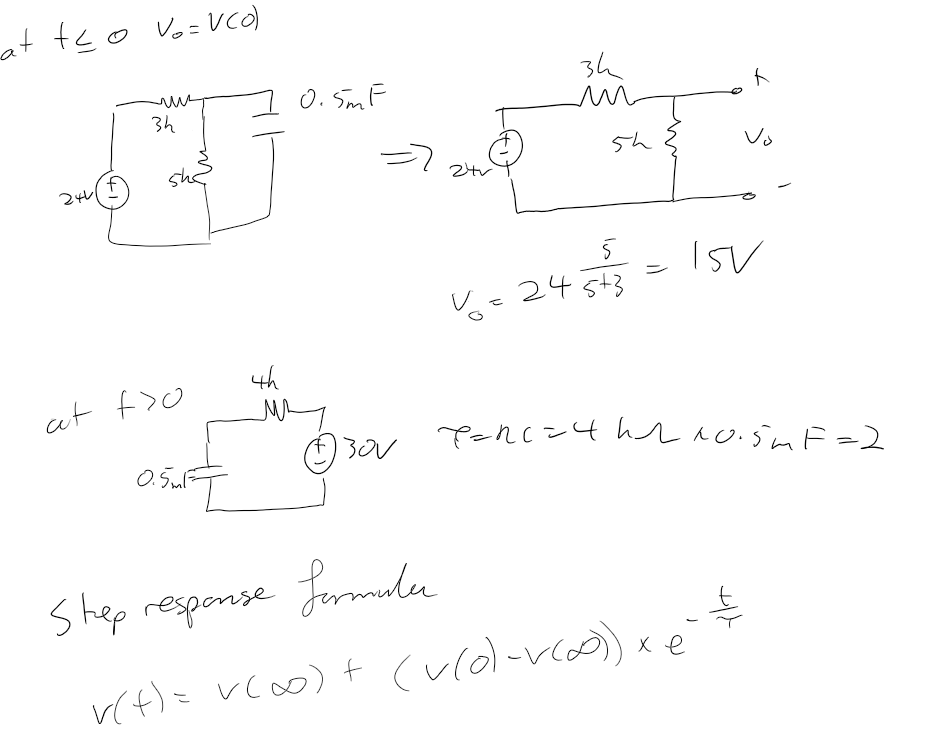 at t ≤ 0 V₀ = V(0)
3h 0.5mF
24V 5h
⇒
3h +
24V 5h V₀
-
V₀ = 24 5/(5+3) = 15V
at t>0
4h
0.5mF 30V
τ=RC=4 kΩ x 0.5mF = 2
Step response formula
v(t) = v(∞) + (v(0) - v(∞)) x e^(-t/τ)